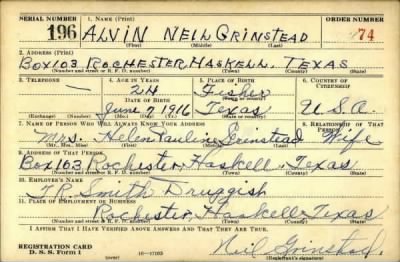 SERIAL NUMBER 1. NAME (Print) ORDER NUMBER
196 ALVIN NEIL GRINSTEAD 74
(First) (Middle) (Last)
2. ADDRESS (Print)
BOX 103 ROCHESTER, HASKELL, TEXAS
(Number and street or R. F. D. number) (Town) (County) (State)
3. TELEPHONE 4. AGE IN YEARS 5. PLACE OF BIRTH 6. COUNTRY OF CITIZENSHIP
— 24 Fisher
DATE OF BIRTH (Town or county)
June 9 1916 Texas U.S.A.
(Exchange) (Number) (Mo.) (Day) (Yr.) (State or country)
7. NAME OF PERSON WHO WILL ALWAYS KNOW YOUR ADDRESS 8. RELATIONSHIP OF THAT PERSON
Mrs. Helen Pauline Grinstead Wife
(Mr., Mrs., Miss) (First) (Middle) (Last)
9. ADDRESS OF THAT PERSON
Box 103, Rochester, Haskell, Texas
(Number and street or R. F. D. number) (Town) (County) (State)
10. EMPLOYER'S NAME
Smith Druggist
11. PLACE OF EMPLOYMENT OR BUSINESS
Rochester, Haskell, Texas
(Number and street or R. F. D. number) (Town) (County) (State)
I AFFIRM THAT I HAVE VERIFIED ABOVE ANSWERS AND THAT THEY ARE TRUE.
REGISTRATION CARD
D. S. S. Form 1 16—17105 Neil Grinstead
(Registrant's signature)